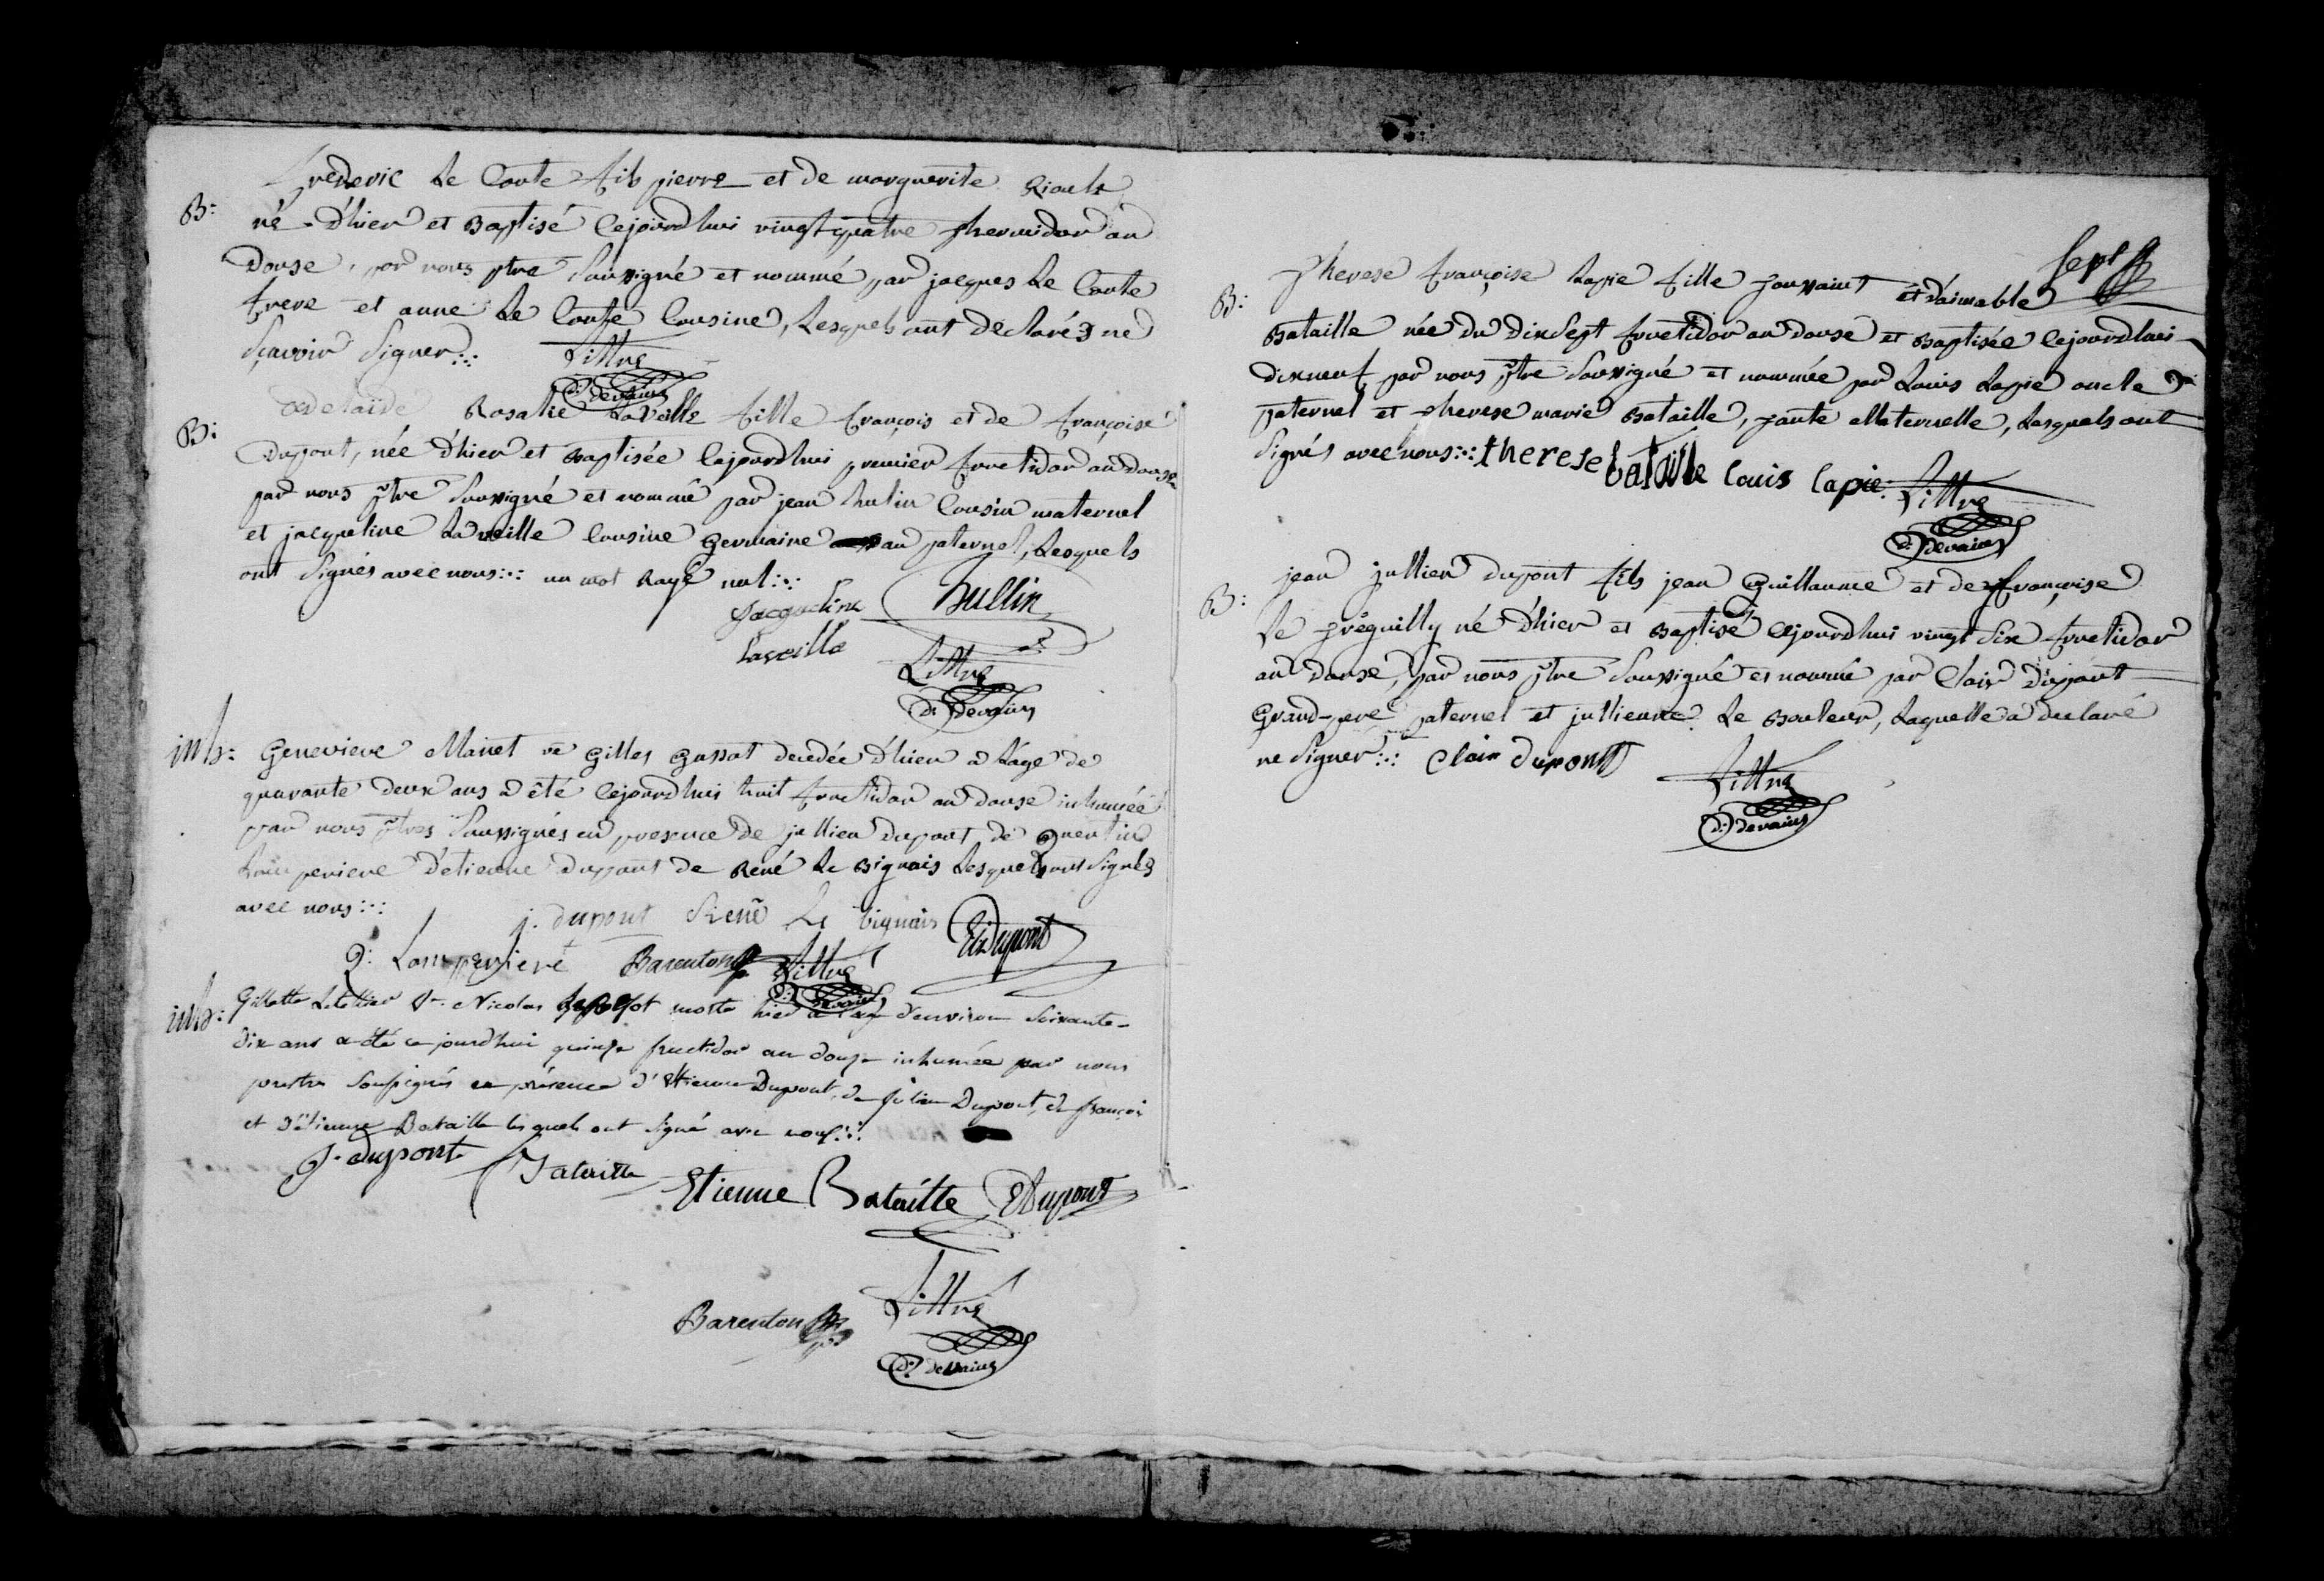 B:
frederic Le Conte fils pierre et de marguerite
né d'hier et Baptisé Cejourdhui vingt quatre thermidor an
douse, par nous ptre Soussigné et nommé par jacques Le Conte
frere et anne Le Conte Cousine, Lesquels ont déclarés ne
Sçavoir Signer
Littré
d. devains
B:
adelaïde Rosalie Laveille fille françois et de françoise
Dupont, née d'hier et Baptisée Cejourdhui premier fructidor an douse
par nous ptre Soussigné et nommée par jean hulin Cousin maternel
et jacqueline Laveille Cousine Germaine au paternel, Lesquels
ont Signés avec nous un mot Rayé nul
Jacqueline
Laveille
hullin
Littré
d. devains
inh:
Genevieve Manet ve Gilles Gassot decedée d'hier a Lage de
quarante deux ans a été Cejourdhui huit fructidor an douse inhumée
par nous ptres Soussignés en presence de jullien dupont, de Quentin
Lamperiere d'etienne dupont de René Le Bignais Lesquels ont Signés
avec nous
j. dupont René Le bignais EtDupont
Q. Lamperiere Barenton Littré
d. devains
inh:
Gillette Letellier Ve Nicolas morte hier a lage d'environ Soixante-
dix ans a été ce jourdhui quinze fructidor an douze inhumée par nous
prestres Soussignés en présence d'Etienne Dupont, de Julien Dupont, de françois
et d'étienne Bataille lesquels ont signé avec nous
J. dupont f Bataille Etienne Bataille EDupont
Barenton Littré
d. devains
Sept
B:
therese françoise Lapie fille toussaint et d'aimable
Bataille née du dixsept fructidor an douse et Baptisée Cejourdhui
dixneuf, par nous ptre Soussigné et nommée par Louis Lapie oncle
paternel et therese marie Bataille, tante Maternelle, Lesquels ont
Signés avec nous therese bataille louis lapie Littré
d. devains
B:
jean jullien dupont fils jean Guillaume et de françoise
Le tréguilly né d'hier et Baptisé Cejourdhui vingt Six fructidor
an douse, par nous ptre Soussigné et nommé par Clair dupont
Grand-pere paternel et jullienne Le Bouleur, Laquelle a declaré
ne Signer clair dupont
Littré
d. devains